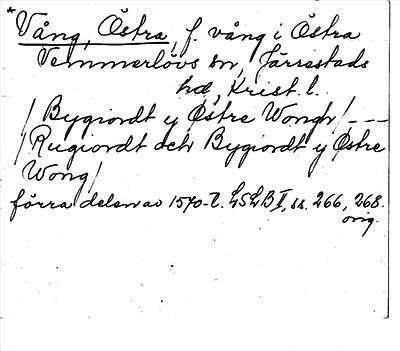 * Vång, Östra, f. vång i Östra
Vemmerlövs sn, Järrestads
hd, Krist. l.
/ Bygiordt y Østre Wongh / ---
/ Rugiordt och Bygiordt y Østre
Wong /
förra delen av 1570-t. LSLB II, ss. 266, 268.
orig.